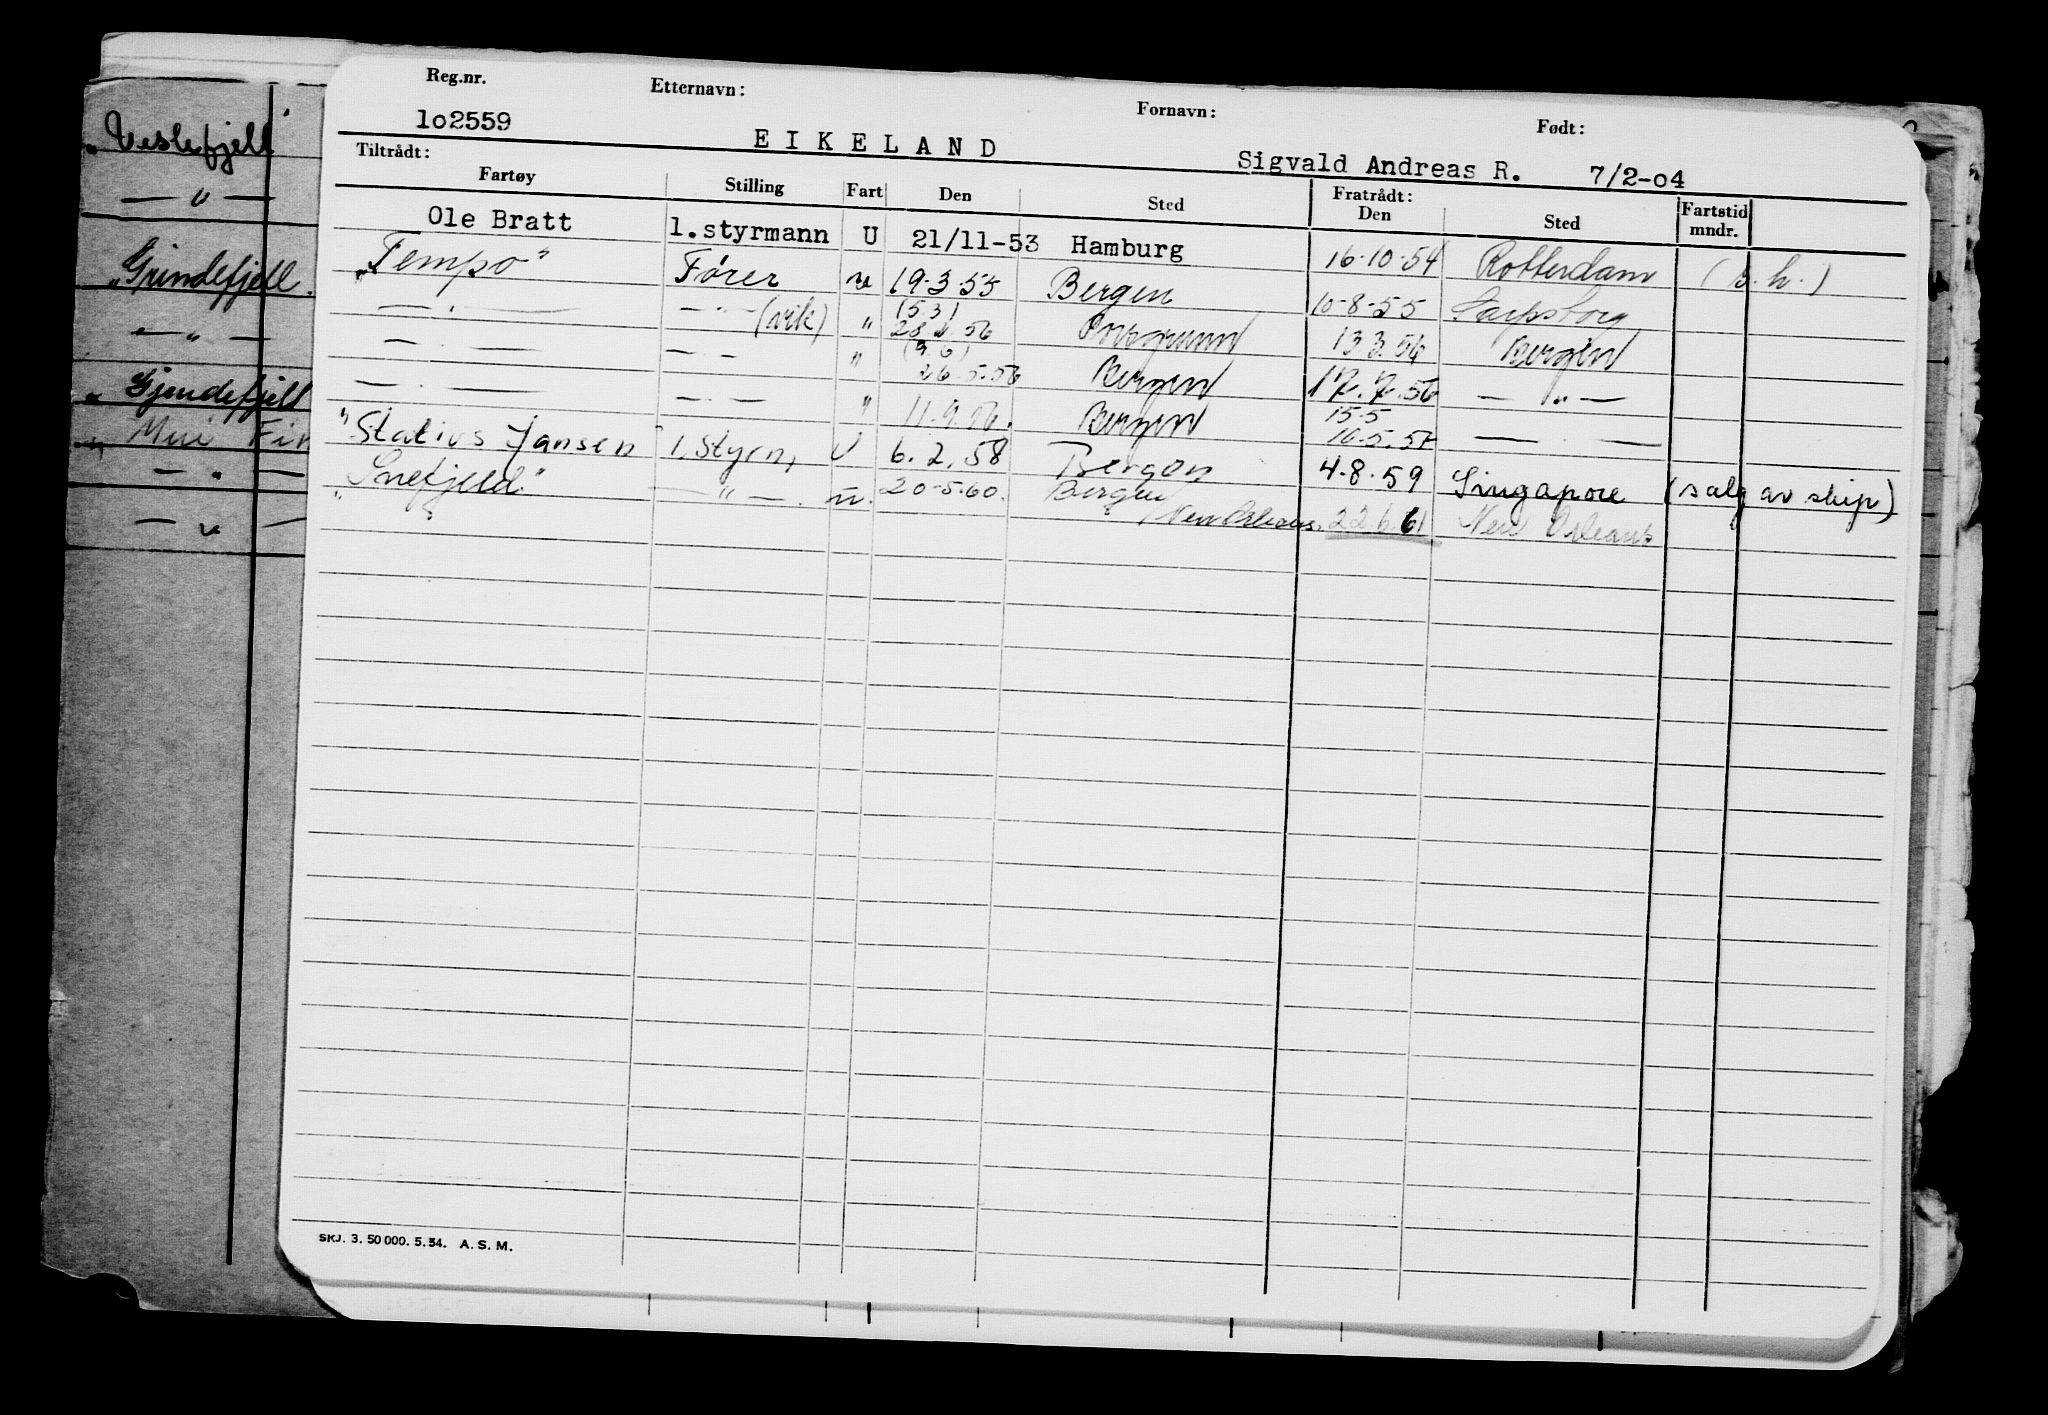 Reg.nr. Etternavn: Fornavn: Født:
lo2559 EIKELAND Sigvald Andreas R. 7/2-o4
Tiltrådt: Fratrådt:
Fartøy Stilling Fart Den Sted Den Sted Fartstid mndr.
Ole Bratt l.styrmann U 21/11-53 Hamburg 16-10-54 Rotterdam (s.h.)
"Tempo" Fører u 19-3-55 Bergen 10-8-55 Sarpsborg
— " — — " — (vik) " (531) 28.1.56 Porsgrunn 13 3.56 Bergen
— " — — " — " (9.6) 26.5.56 Bergen 17.7.56 — " —
— " — — " — " 11.9.56. Bergen 15.5 16.5.57 — " —
"Statius Jansen" 1, Styrm, U 6.2.58 Bergen 4.8.59 Singapore (salg av skip)
"Snefjeld" — " —. u. 20-5.60. Bergen
New Orleans. 22.6.61 New Orleans
"Veslefjell"
— " —
"Grindefjell.
— " —
"Gjendefjell
" Mui Fin
— " —
— " —
SKJ. 3. 50 000. 5. 54. A. S. M.